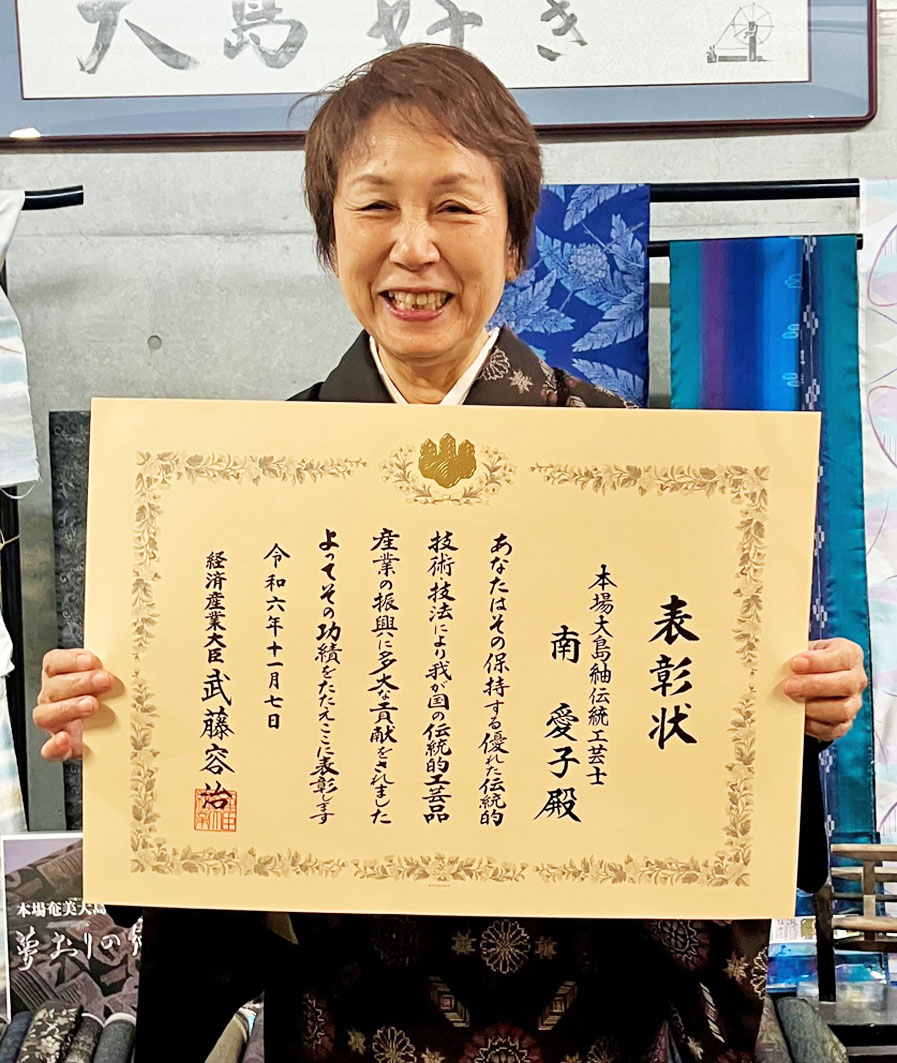 大島好き
表彰状
本場大島紬伝統工芸士
南 愛子殿
あなたはその保持する優れた伝統的
技術・技法により我が国の伝統的工芸品
産業の振興に多大な貢献をされました
よってその功績をたたえここに表彰します
令和六年十一月七日
経済産業大臣 武藤容治
本場奄美大島
夢おりの